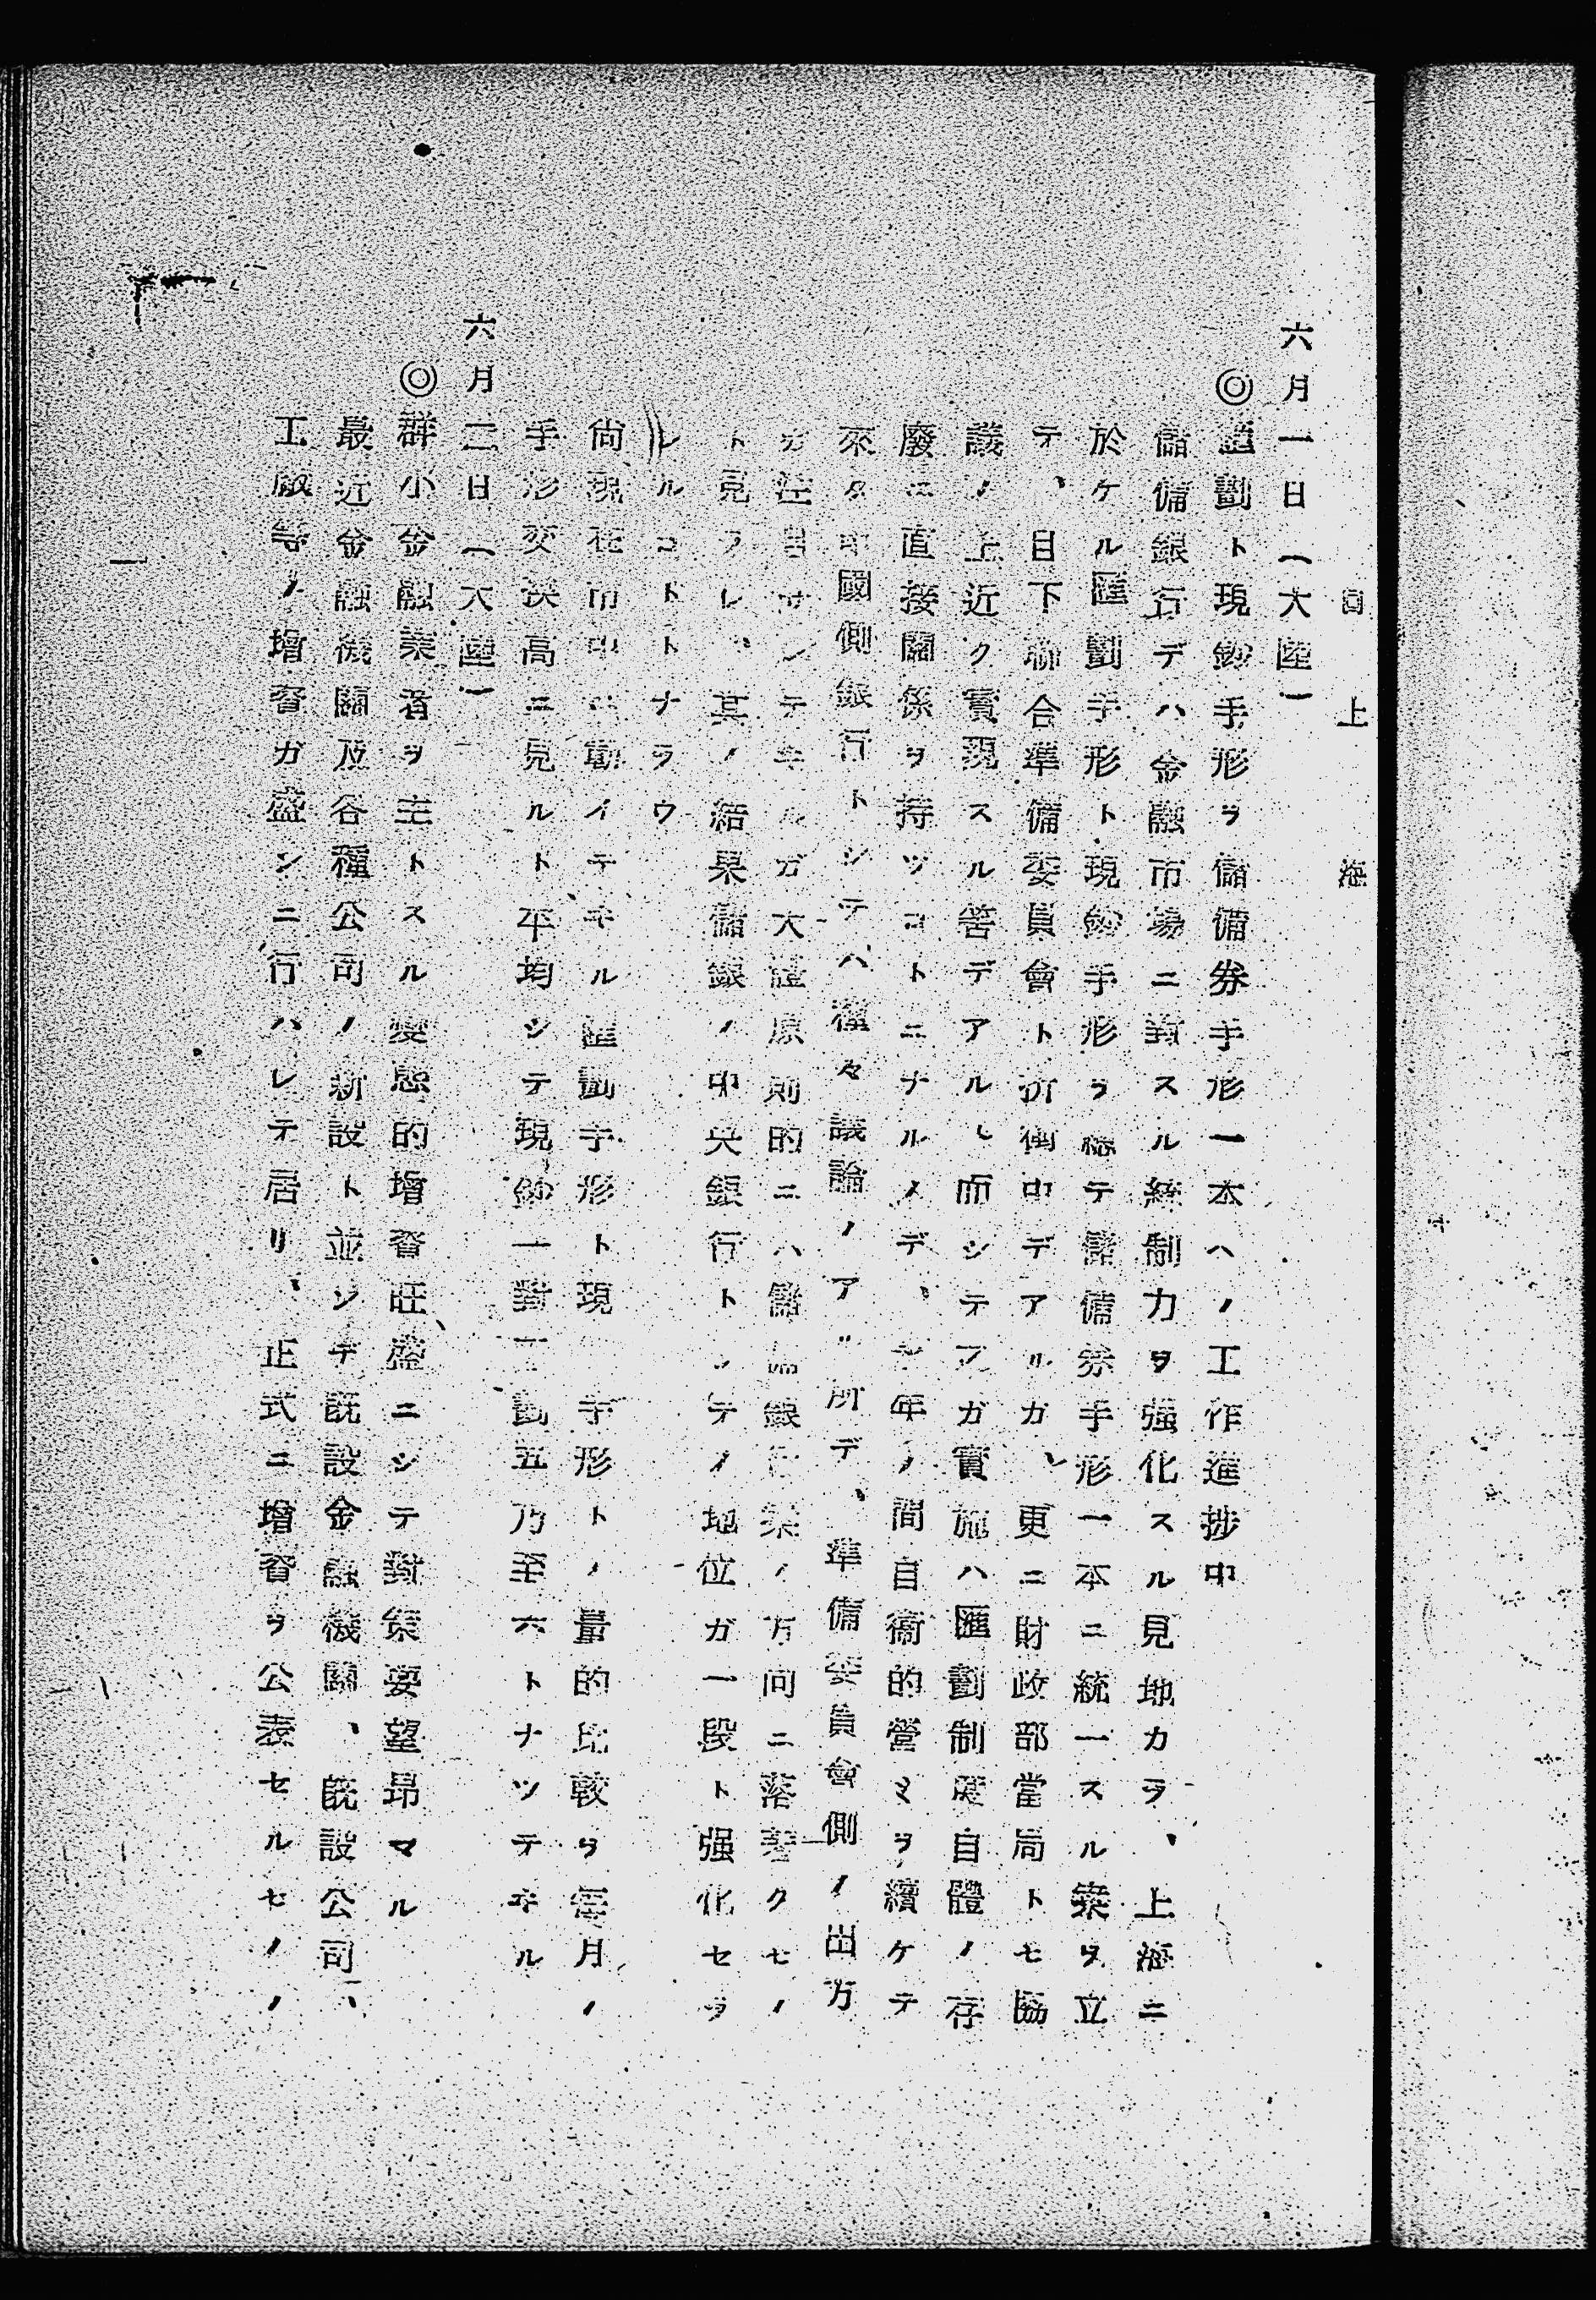 上海
六月一日（大陸）
◎匯劃ト現鈔手形ヲ儲備券手形一本ヘノ工作進捗中
儲備銀行デハ金融市場ニ對スル統制力ヲ强化スル見地カラ、上海ニ
於ケル匯劃手形ト現鈔手形ヲ總テ儲備券手形一本ニ統一スル案ヲ立
テ、目下聯合準備委員會ト折衝中デアルガ、更ニ財政部當局トモ協
議ノ上近ク實現スル筈デアル、而シテ之ガ實施ハ匯劃制度自體ノ存
廢ニ直接關係ヲ持ツコトニナルノデ、年ノ間自衞的營ミヲ續ケテ
來タ中國側銀行トシテハ種々議論ノアル所デ、準備委員會側ノ出方
ガ注目サレテヰルガ大體原則的ニハ儲備銀行案ノ方向ニ落着クモノ
ト見ラレ、其ノ結果儲銀ノ中央銀行トシテノ地位ガ一段ト强化セラ
レルコトトナラウ
尙現在市中ニ動イテヰル匯劃手形ト現 手形トノ量的比較ヲ每月ノ
手形交換高ニ見ルト、平均シテ現鈔一對匯劃五乃至六トナツテヰル
六月二日（大陸）
◎群小金融業者ヲ主トスル變態的增資旺盛ニシテ對策要望昂マル
最近金融機關及各種公司ノ新設ト並ンデ既設金融機關、既設公司、
工廠等ノ增資ガ盛ンニ行ハレテ居リ、正式ニ增資ヲ公表セルモノノ